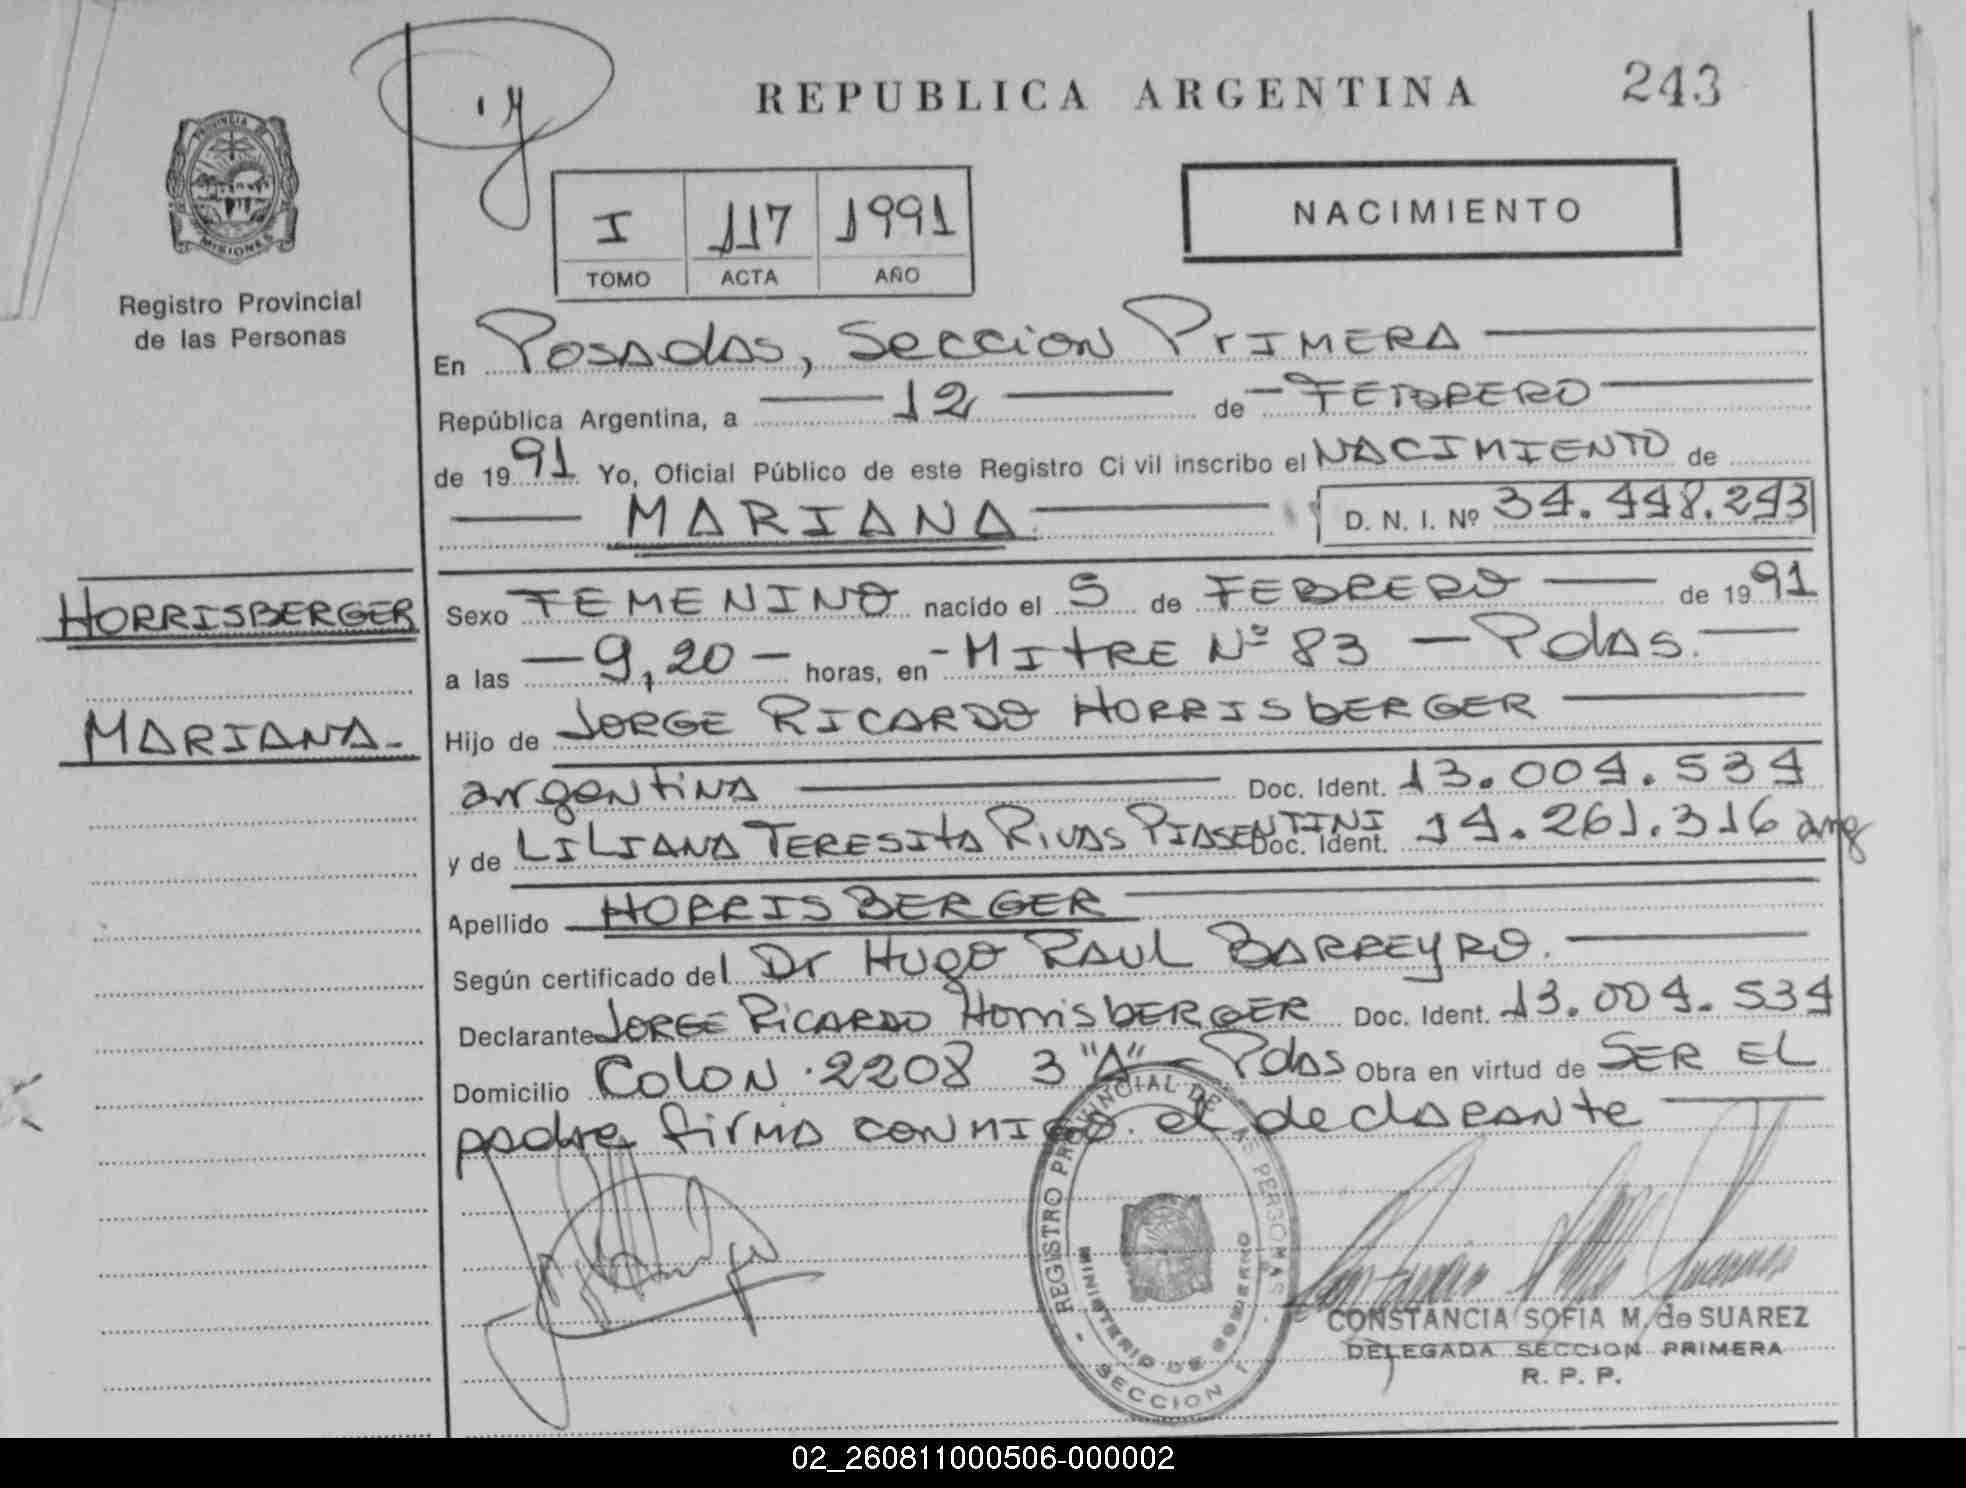 REPUBLICA ARGENTINA
243
PROVINCIA DE MISIONES
Registro Provincial
de las Personas
I 117 1991
TOMO ACTA AÑO
NACIMIENTO
En Posadas, Seccion Primera
República Argentina, a 12 de FEBRERO
de 1991 Yo, Oficial Público de este Registro Civil inscribo el NACIMIENTO de
MARIANA D. N. I. Nº 34.448.243
HORRISBERGER
MARIANA-
Sexo FEMENINO nacido el 5 de FEBRERO de 1991
a las -9,20- horas, en -MITRE Nº 83 - Pdas.
Hijo de JORGE RICARDO HORRISBERGER
argentina Doc. Ident. 13.004.534
y de LILIANA TERESITA RIVAS PIASENTINI Doc. Ident. 14.261.316 arg
Apellido HORRISBERGER
Según certificado del Dr HUGO RAUL BARREYRO.
Declarante JORGE RICARDO HORRISBERGER Doc. Ident. 13.004.534
Domicilio COLON 2208 3 "A" - Pdas Obra en virtud de SER EL
padre firma conmigo el declarante
REGISTRO PROVINCIAL DE LAS PERSONAS
MINISTERIO DE GOBIERNO
- SECCION 1ª -
CONSTANCIA SOFIA M. de SUAREZ
DELEGADA SECCION PRIMERA
R. P. P.
02_260811000506-000002